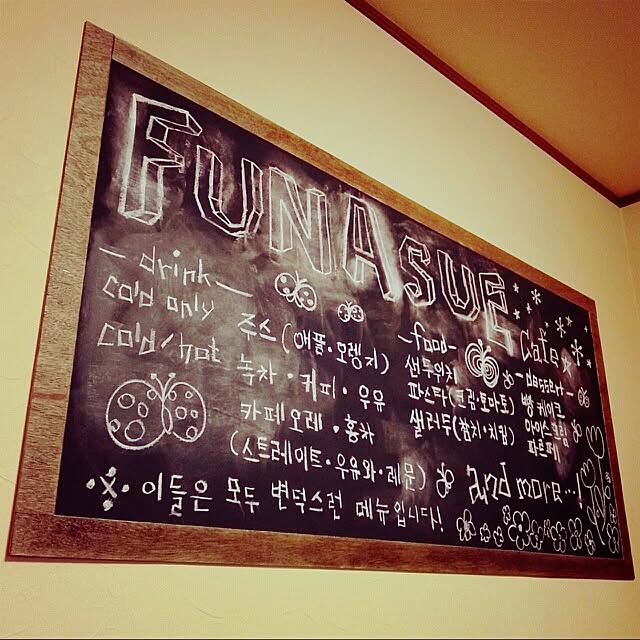 FUNASUE
Cafe
-drink-
cold only
주스(애플·오렝지)
cold/hot
녹차·커피·우유
카페오레·홍차
(스트레이트·우유와·레몬)
-food-
샌두위치
파스타(크림·토마토)
샐러두(참치·치킴)
-dessert-
빵케이크
아이스크림
파르페
and more...!
※이들은 모두 변덕스런 메뉴입니다!